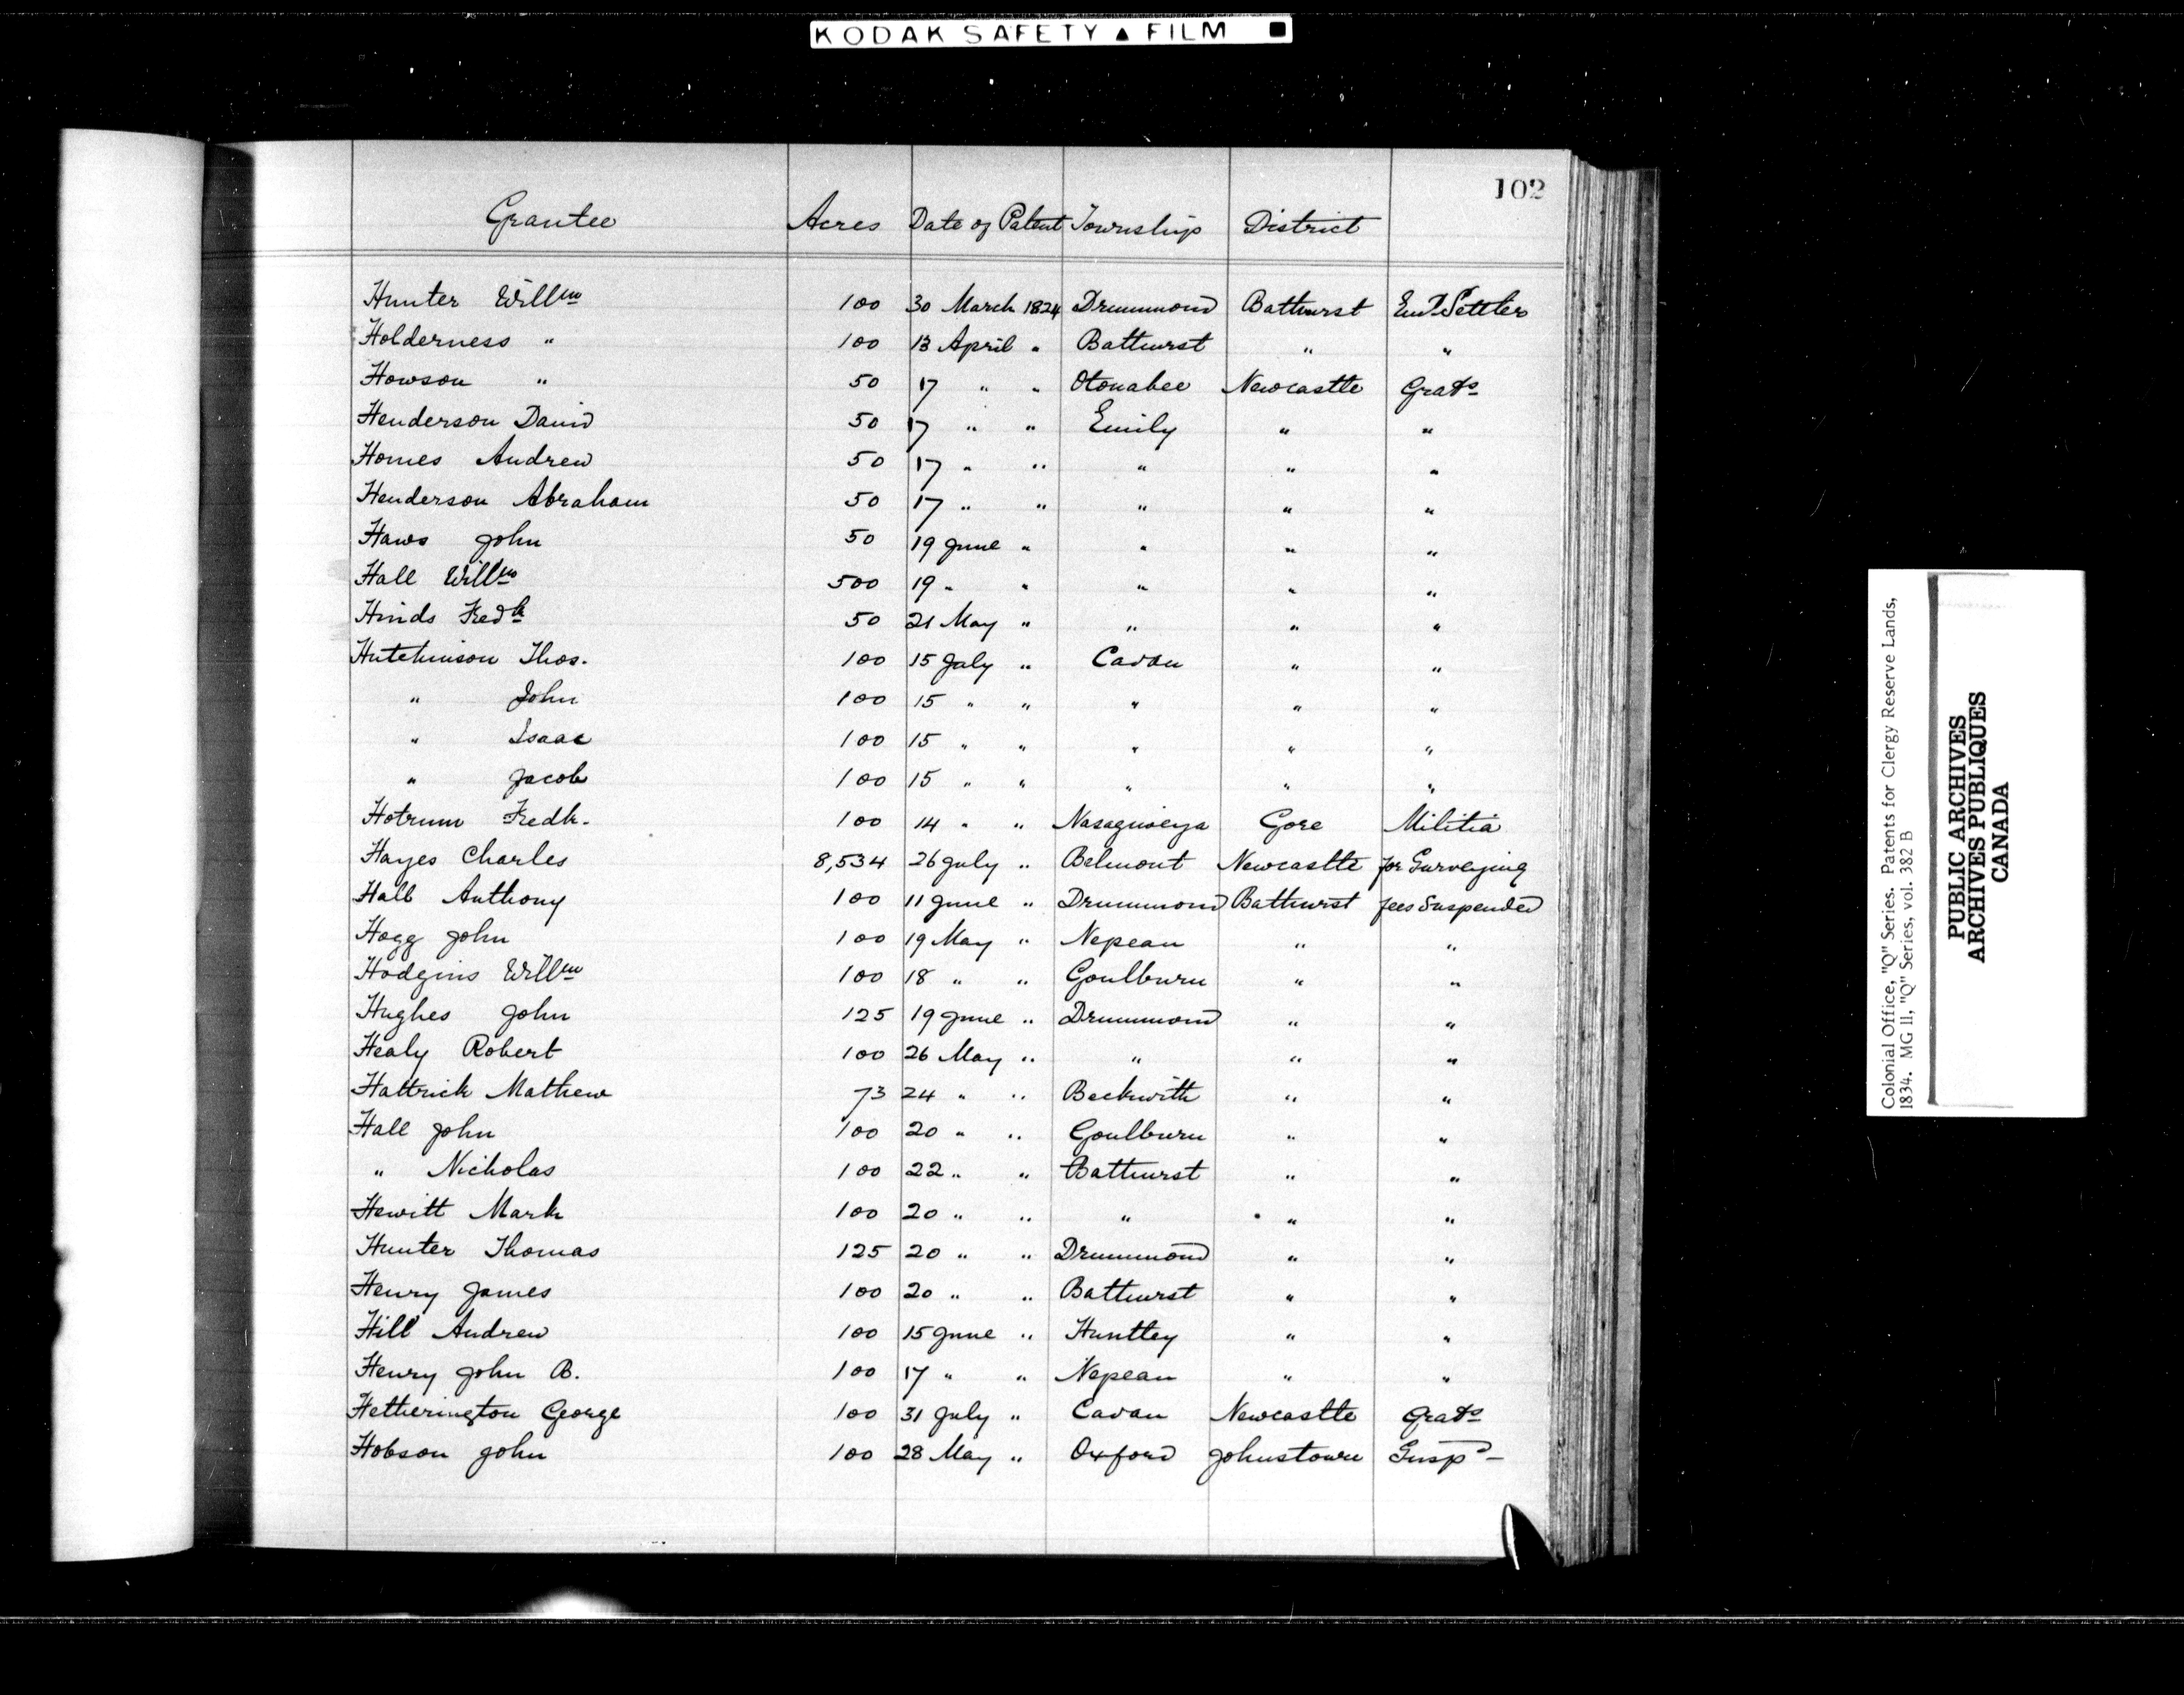 KODAK SAFETY ▲ FILM ■
102
Grantee Acres Date of Patent Township District
Hunter Willm 100 30 March 1824 Drummond Bathurst Emt. Settler
Holderness " 100 13 April " Bathurst " "
Howson " 50 17 " " Otonabee Newcastle Grats
Henderson David 50 17 " " Emily " "
Homes Andrew 50 17 " " " " "
Henderson Abraham 50 17 " " " " "
Haws John 50 19 June " " " "
Hall Willm 500 19 " " " " "
Hinds Fredk 50 21 May " " " "
Hutchinson Thos. 100 15 July " Cavan " "
" John 100 15 " " " " "
" Isaac 100 15 " " " " "
" Jacob 100 15 " " " " "
Hotrum Fredk. 100 14 " " Nasagiweya Gore Militia
Hayes Charles 8,534 26 July " Belmont Newcastle for Surveying
Hall Anthony 100 11 June " Drummond Bathurst fees Suspended
Hogg John 100 19 May " Nepean " "
Hodgins Willm 100 18 " " Goulburn " "
Hughes John 125 19 June " Drummond " "
Healy Robert 100 26 May " " " "
Hattrick Mathew 73 24 " " Beckwith " "
Hall John 100 20 " " Goulburn " "
" Nicholas 100 22 " " Bathurst " "
Hewitt Mark 100 20 " " " " "
Hunter Thomas 125 20 " " Drummond " "
Henry James 100 20 " " Bathurst " "
Hill Andrew 100 15 June " Huntley " "
Henry John B. 100 17 " " Nepean " "
Hetherington George 100 31 July " Cavan Newcastle Grats
Hobson John 100 28 May " Oxford Johnstown Suspd
Colonial Office, "Q" Series. Patents for Clergy Reserve Lands,
1834. MG 11, "Q" Series, vol. 382 B
PUBLIC ARCHIVES
ARCHIVES PUBLIQUES
CANADA